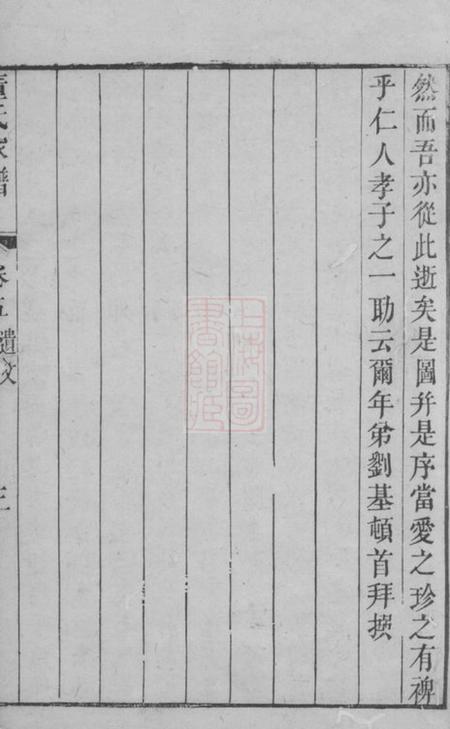 然而吾亦從此逝矣是圖并是序當愛之珍之有裨
乎仁人孝子之一助云爾年弟劉基頓首拜撰
氏家譜
卷五
遺文
三
上海圖書館藏